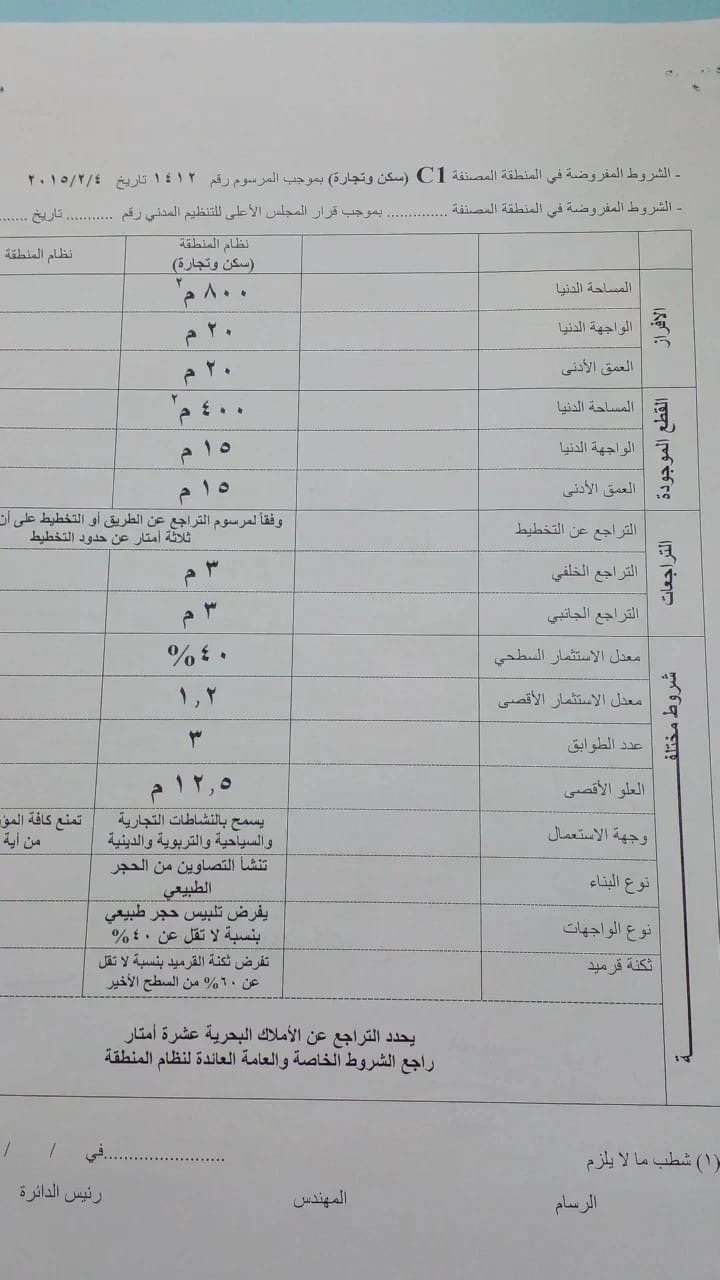 - الشروط المفروضة في المنطقة المصنفة C1 (سكن وتجارة) بموجب المرسوم رقم ١٤١٢ تاريخ ٢٠١٥/٢/٤
- الشروط المفروضة في المنطقة المصنفة .............. بموجب قرار المجلس الأعلى للتنظيم المدني رقم ........... تاريخ .......
نظام المنطقة
(سكن وتجارة)
نظام المنطقة
الافراز
المساحة الدنيا ٨٠٠ م٢
الواجهة الدنيا ٢٠ م
العمق الأدنى ٢٠ م
القطع الموجودة
المساحة الدنيا ٤٠٠ م٢
الواجهة الدنيا ١٥ م
العمق الأدنى ١٥ م
التراجعات
التراجع عن التخطيط
وفقاً لمرسوم التراجع عن الطريق أو التخطيط على أن
ثلاثة أمتار عن حدود التخطيط
التراجع الخلفي ٣ م
التراجع الجانبي ٣ م
شروط مختلفـــــة
معدل الاستثمار السطحي ٤٠%
معدل الاستثمار الأقصى ١,٢
عدد الطوابق ٣
العلو الأقصى ١٢,٥ م
وجهة الاستعمال
يسمح بالنشاطات التجارية
والسياحية والتربوية والدينية
تمنع كافة
من أية
نوع البناء
تنشأ التصاوين من الحجر
الطبيعي
نوع الواجهات
يفرض تلبيس حجر طبيعي
بنسبة لا تقل عن ٤٠%
ثكنة قرميد
تفرض ثكنة القرميد بنسبة لا تقل
عن ٦٠% من السطح الأخير
يحدد التراجع عن الأملاك البحرية عشرة أمتار
راجع الشروط الخاصة والعامة العائدة لنظام المنطقة
(١) شطب ما لا يلزم
........................في / /
الرسام المهندس رئيس الدائرة